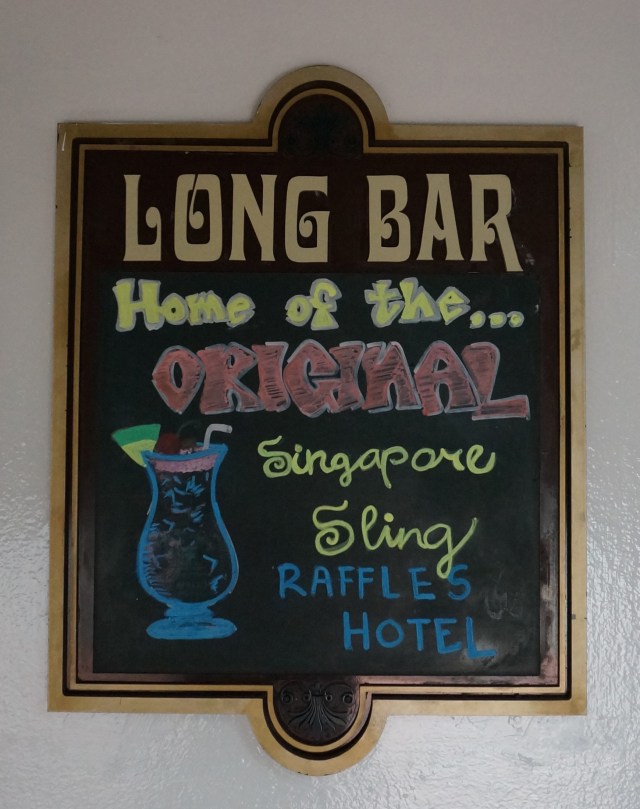 LONG BAR
Home of the...
ORIGINAL
Singapore
Sling
RAFFLES
HOTEL